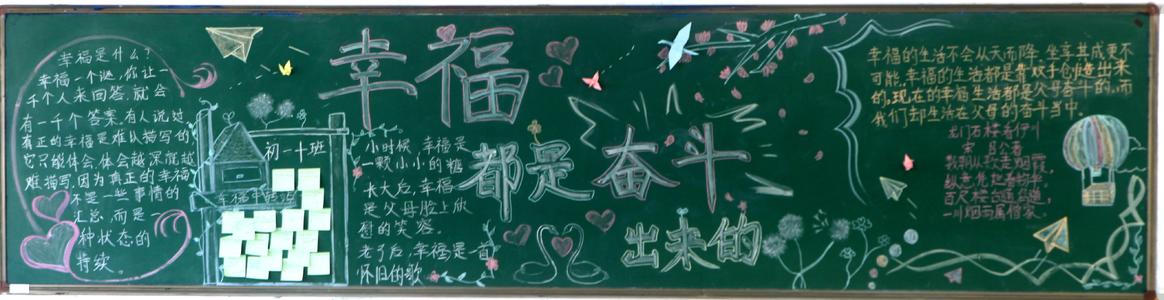 幸福是什么?
幸福一个谜,你让一
千个人来回答,就会
有一千个答案.有人说过
真正的幸福是难以描写的,
它只能体会,体会越深就越
难描写,因为真正的幸福
不是一些事情的
汇总,而是一
种状态的
持续。
初一十班
幸福
都是奋斗
出来的
小时候,幸福是
一颗小小的糖
长大后,幸福
是父母脸上欣
慰的笑容。
老了后,幸福是一首
怀旧的歌
幸福的生活不会从天而降,坐享其成更不
可能,幸福的生活都是靠双手创造出来
的,现在的幸福生活都是父母奋斗的,而
我们却生活在父母的奋斗当中。